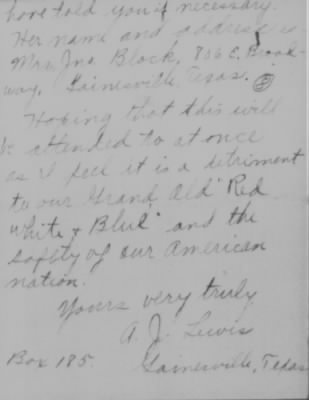 have told you if necessary.
Her name and address is
Mrs. Jno. Block, 806 E. Broad-
way, Gainesville Texas.
Hoping that this will
be attended to at once
as I feel it is a detriment
to our Grand Old "Red
White & Blue" and the
safety of our American
nation.
Yours very truly
A. J. Lewis
Box 185.
Gainesville, Texas